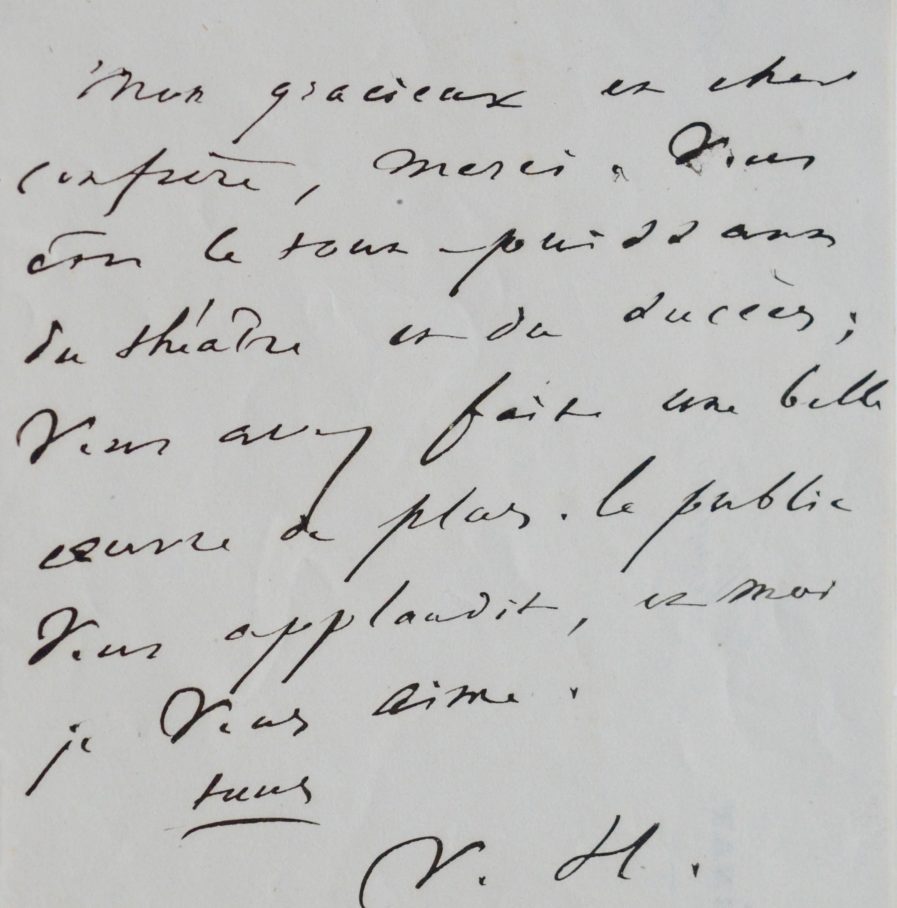 Mon gracieux et cher
confrère, merci. Vous
êtes le tout-puissant
du théâtre et du succès;
Vous avez fait une belle
œuvre de plus. le public
Vous applaudit, et moi
je Vous aime.
tuus
V. H.